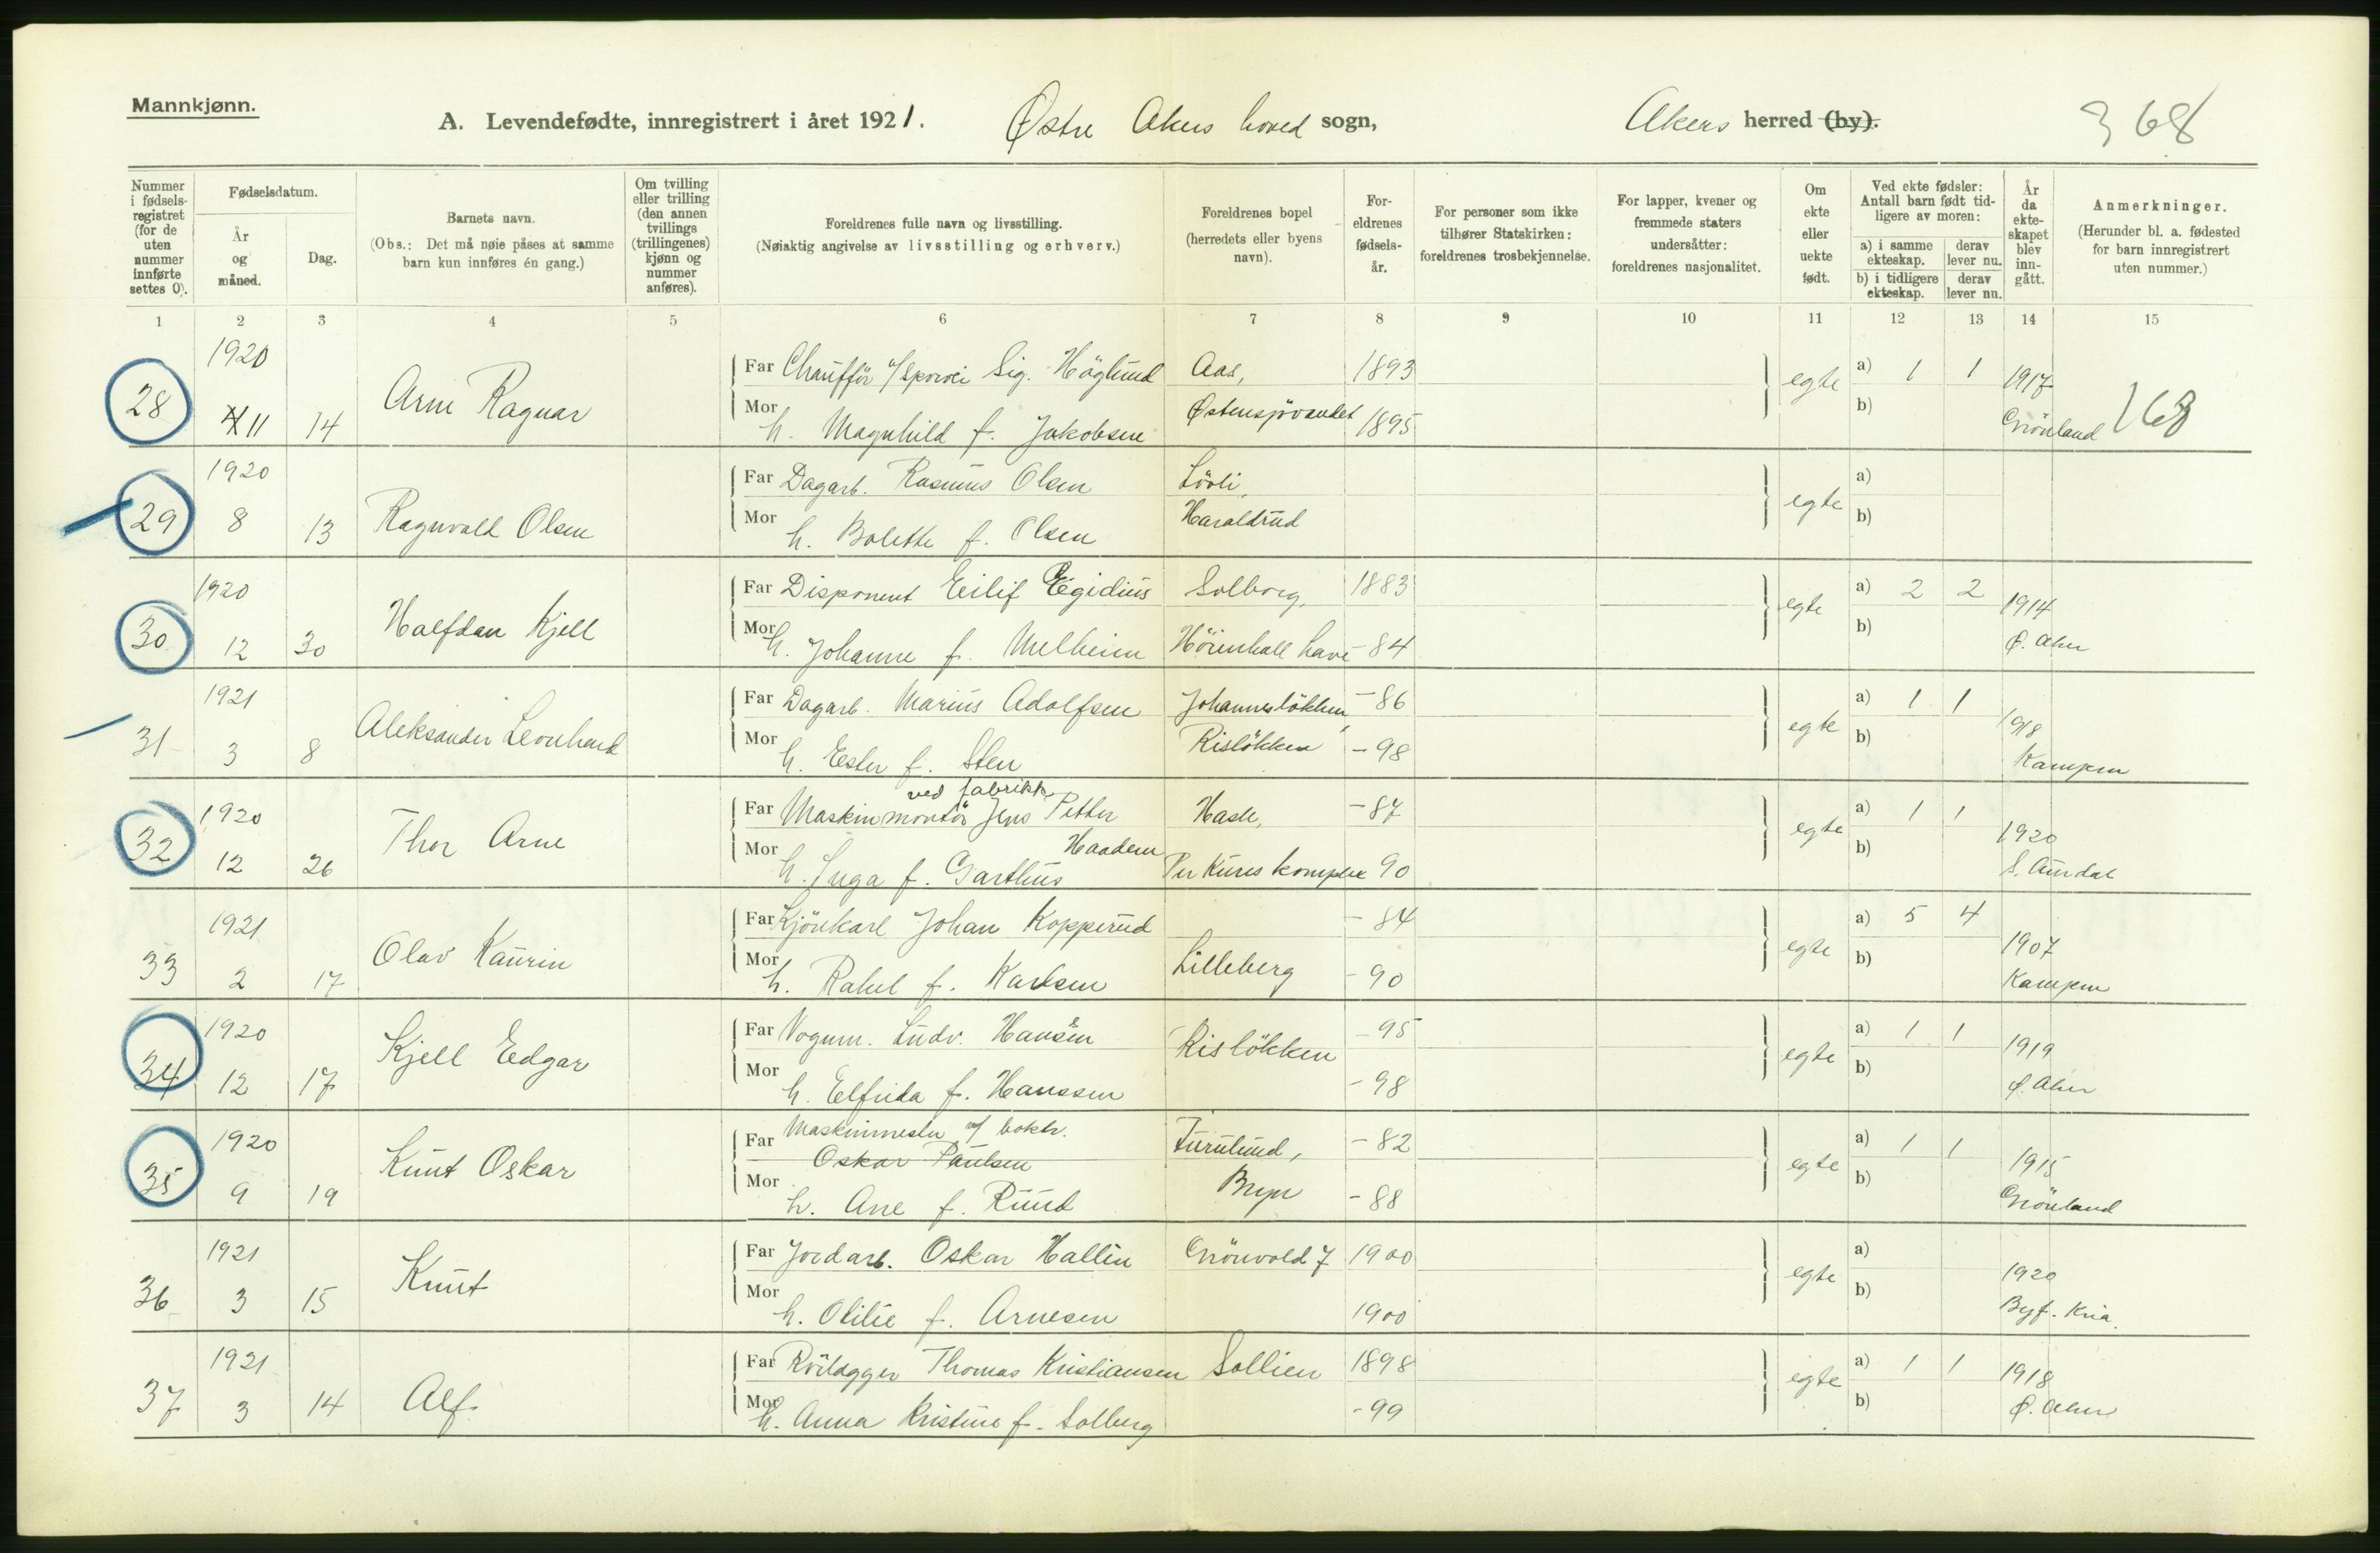 Mannkjønn.
A. Levendefødte, innregistrert i året 1921. Østre Akers hoved sogn, Akers herred (by). 368
Nummer i fødselsregistret (for de uten nummer innførte settes 0).
Fødselsdatum.
År og måned.
Dag.
Barnets navn.
(Obs.: Det må nøie påses at samme barn kun innføres én gang.)
Om tvilling eller trilling (den annen tvillings (trillingenes) kjønn og nummer anføres).
Foreldrenes fulle navn og livsstilling.
(Nøiaktig angivelse av livsstilling og erhverv.)
Foreldrenes bopel (herredets eller byens navn).
Foreldrenes fødselsår.
For personer som ikke tilhører Statskirken: foreldrenes trosbekjennelse.
For lapper, kvener og fremmede staters undersåtter: foreldrenes nasjonalitet.
Om ekte eller uekte født.
Ved ekte fødsler: Antall barn født tidligere av moren:
a) i samme ekteskap. derav lever nu.
b) i tidligere ekteskap. derav lever nu.
År da ekteskapet blev inngått.
Anmerkninger.
(Herunder bl. a. fødested for barn innregistrert uten nummer.)
1 2 3 4 5 6 7 8 9 10 11 12 13 14 15
1920
28 11 14 Arne Ragnar
Far Chaufför Sig. Höglund Aas, 1893
Mor h. Magnhild f. Jakobsen Østensjövandet 1895
egte a) 1 1 b) 1917 Grönland 168
1920
29 8 13 Ragnvald Olsen
Far Dagarb. Rasmus Olsen Lövli,
Mor h. Bolette f. Olsen Haraldrud
egte a) b)
1920
30 12 30 Halfdan Kjell
Far Disponent Eilif Egidius Solborg, 1883
Mor h. Johanne f. Melheim Höienhall have -84
egte a) 2 2 b) 1914 Ø. Aker
1921
31 3 8 Aleksander Leonhard
Far Dagarb. Marius Adolfsen Johanneslökken, -86
Mor h. Ester f. Sten Rislökken -98
egte a) 1 1 b) 1918 Kampen
1920
32 12 26 Thor Arne
ved fabrikk
Far Maskinmontör Jens Petter Haadem Hasle, -87
Mor h. Inga f. Garthus Per Kures komplex 90
egte a) 1 1 b) 1920 S. Aurdal
1921
33 2 17 Olav Kaurin
Far Kjörekarl Johan Kopperud -84
Mor h. Rakel f. Karlsen Lilleberg -90
egte a) 5 4 b) 1907 Kampen
1920
34 12 17 Kjell Edgar
Far Vognm. Ludv. Hansen Rislökken -95
Mor h. Elfrida f. Hanssen -98
egte a) 1 1 b) 1919 Ø. Aker
1920
35 9 19 Knut Oskar
Far Maskinmester v/ boktr. Oskar Paulsen Furulund, -82
Mor h. Ane f. Ruud Bryn -88
egte a) 1 1 b) 1915 Grönland
1921
36 3 15 Knut
Far Jordarb. Oskar Hallin Grönvold 7 1900
Mor h. Otilie f. Arnesen 1900
egte a) b) 1920 Byf. Kria.
1921
37 3 14 Alf
Far Rörlægger Thomas Kristiansen Sollien 1898
Mor h. Anna Kristine f. Solberg -99
egte a) 1 1 b) 1918 Ø. Aker